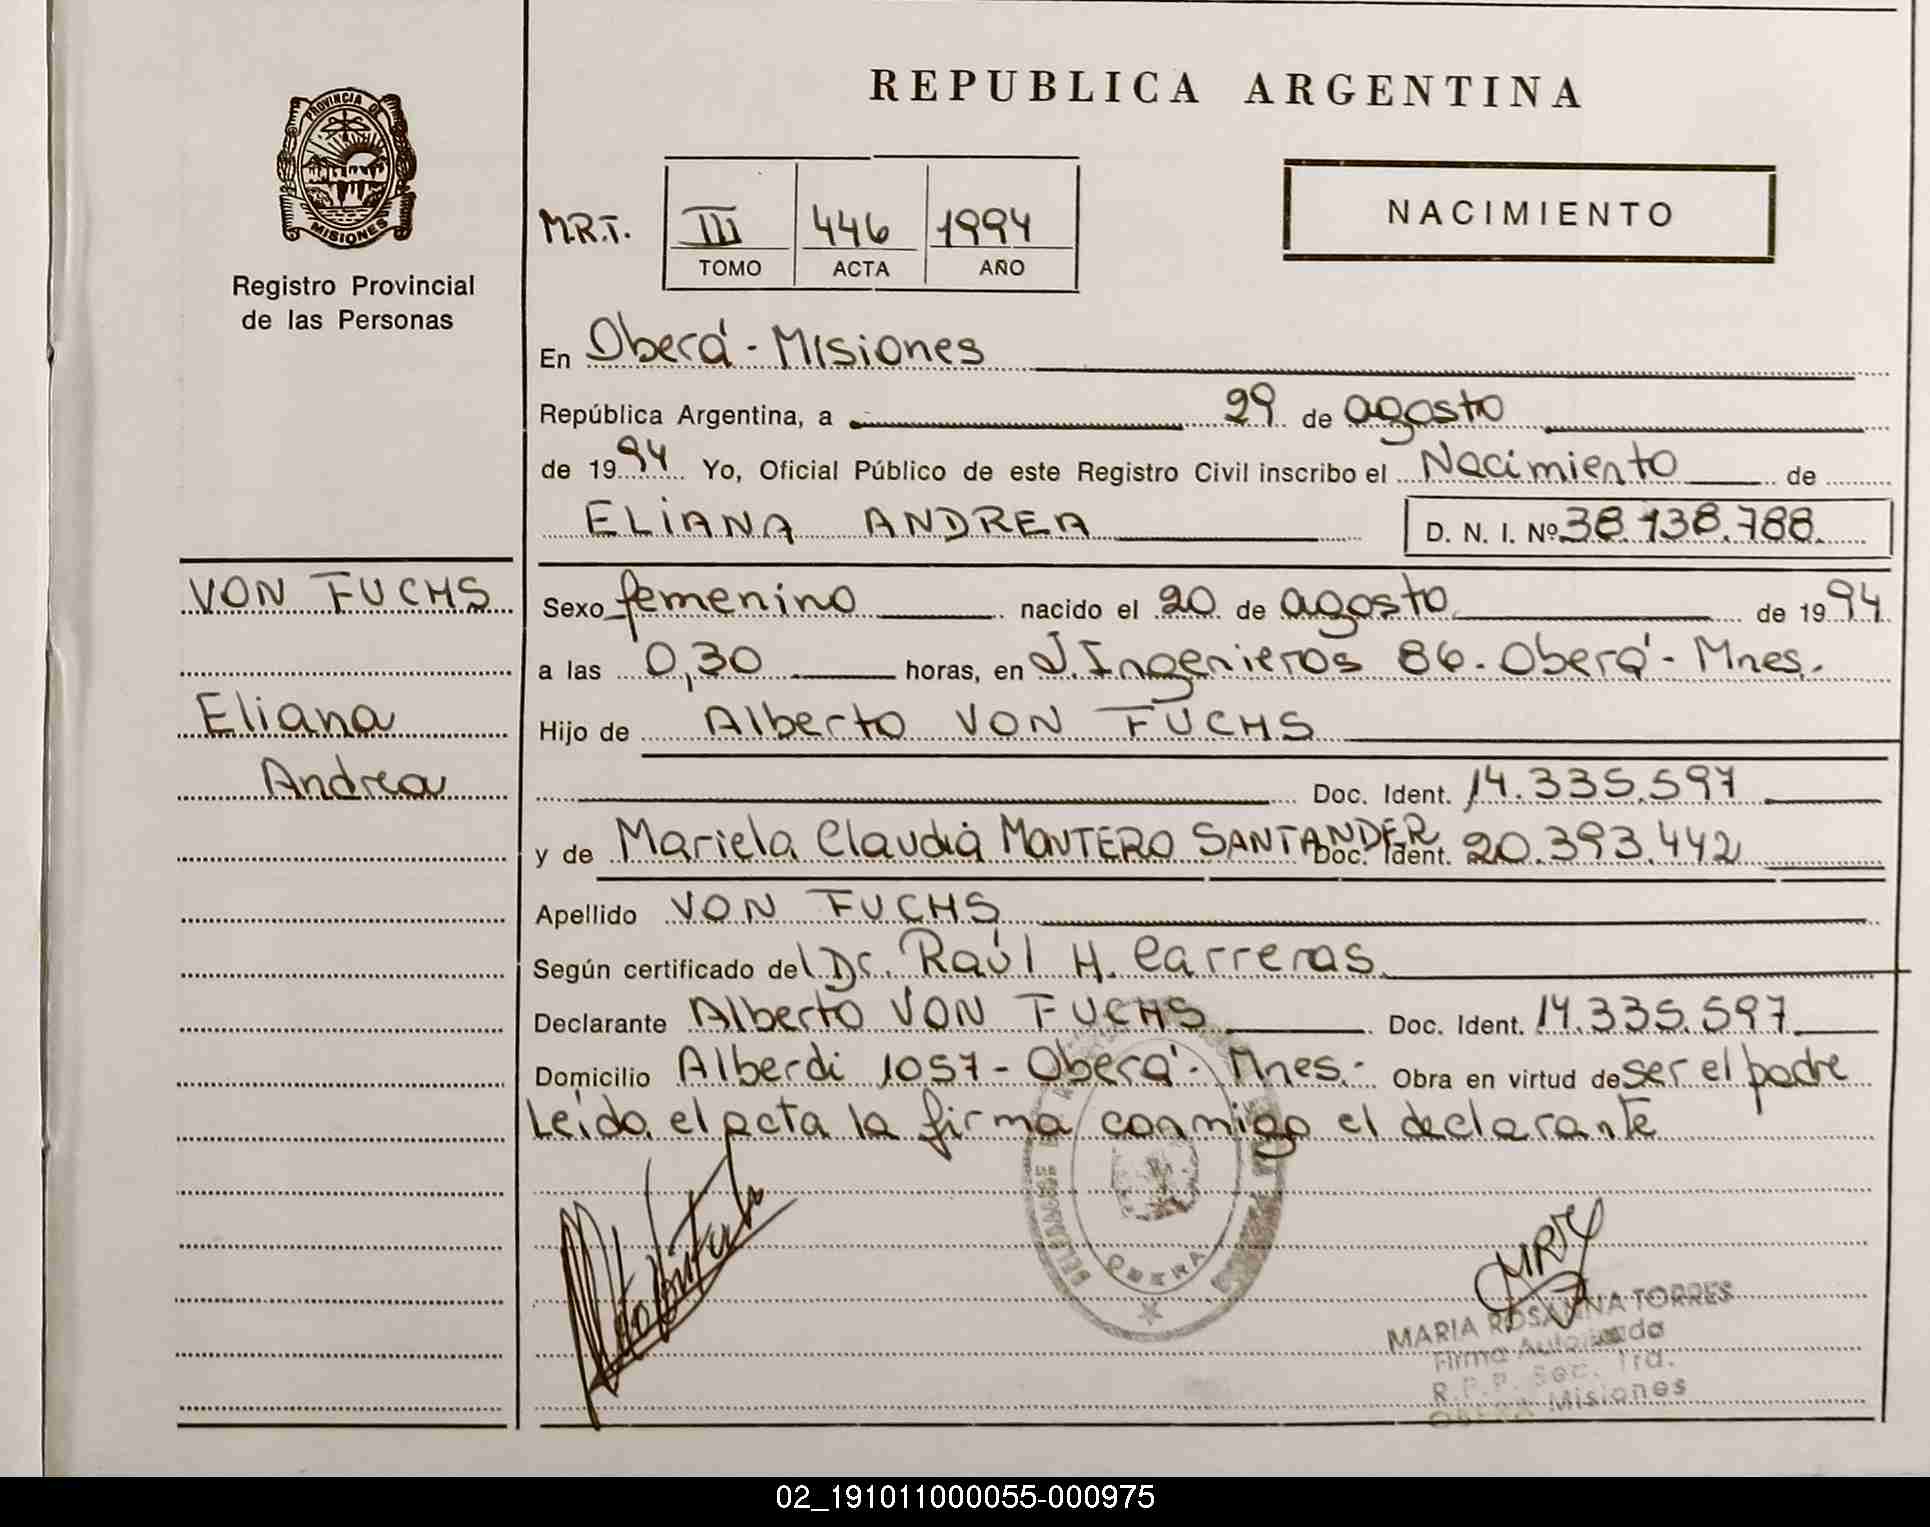 REPUBLICA ARGENTINA
PROVINCIA DE
MISIONES
Registro Provincial
de las Personas
M.R.T. III 446 1994
TOMO ACTA AÑO
NACIMIENTO
En Oberá - Misiones
República Argentina, a 29 de agosto
de 1994 Yo, Oficial Público de este Registro Civil inscribo el Nacimiento de
ELIANA ANDREA D. N. I. Nº 38.138.788.
VON FUCHS
Eliana
Andrea
Sexo femenino nacido el 20 de agosto de 1994
a las 0,30 horas, en J. Ingenieros 86. Oberá - Mnes.
Hijo de Alberto VON FUCHS
Doc. Ident. 14.335.597
y de Mariela Claudia MONTERO SANTANDER Doc. Ident. 20.393.442
Apellido VON FUCHS
Según certificado del Dr. Raúl H. Carreras
Declarante Alberto VON FUCHS Doc. Ident. 14.335.597
Domicilio Alberdi 1057 - Oberá - Mnes.- Obra en virtud de ser el padre
Leída el acta la firma conmigo el declarante
OBERA
MARIA ROSANNA TORRES
Firma Autorizada
R.P.P. Sec. 1ra.
OBERA Misiones
02_191011000055-000975